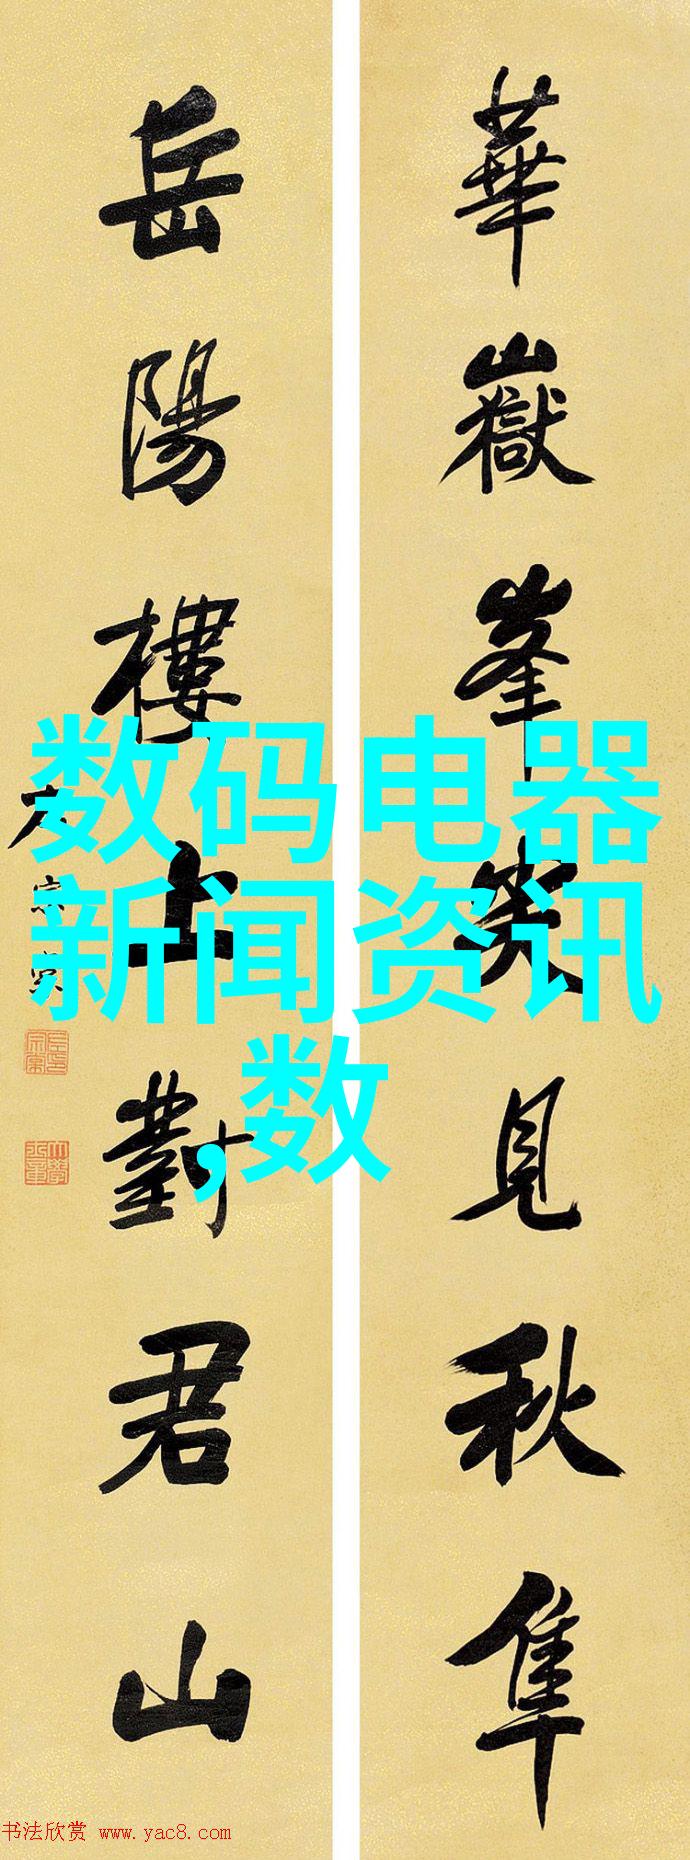 華嶽峯尖見秋隼
岳陽樓上對君山
左宗棠
数码电器
新闻资讯
,数
书法欣赏 www.yac8.com